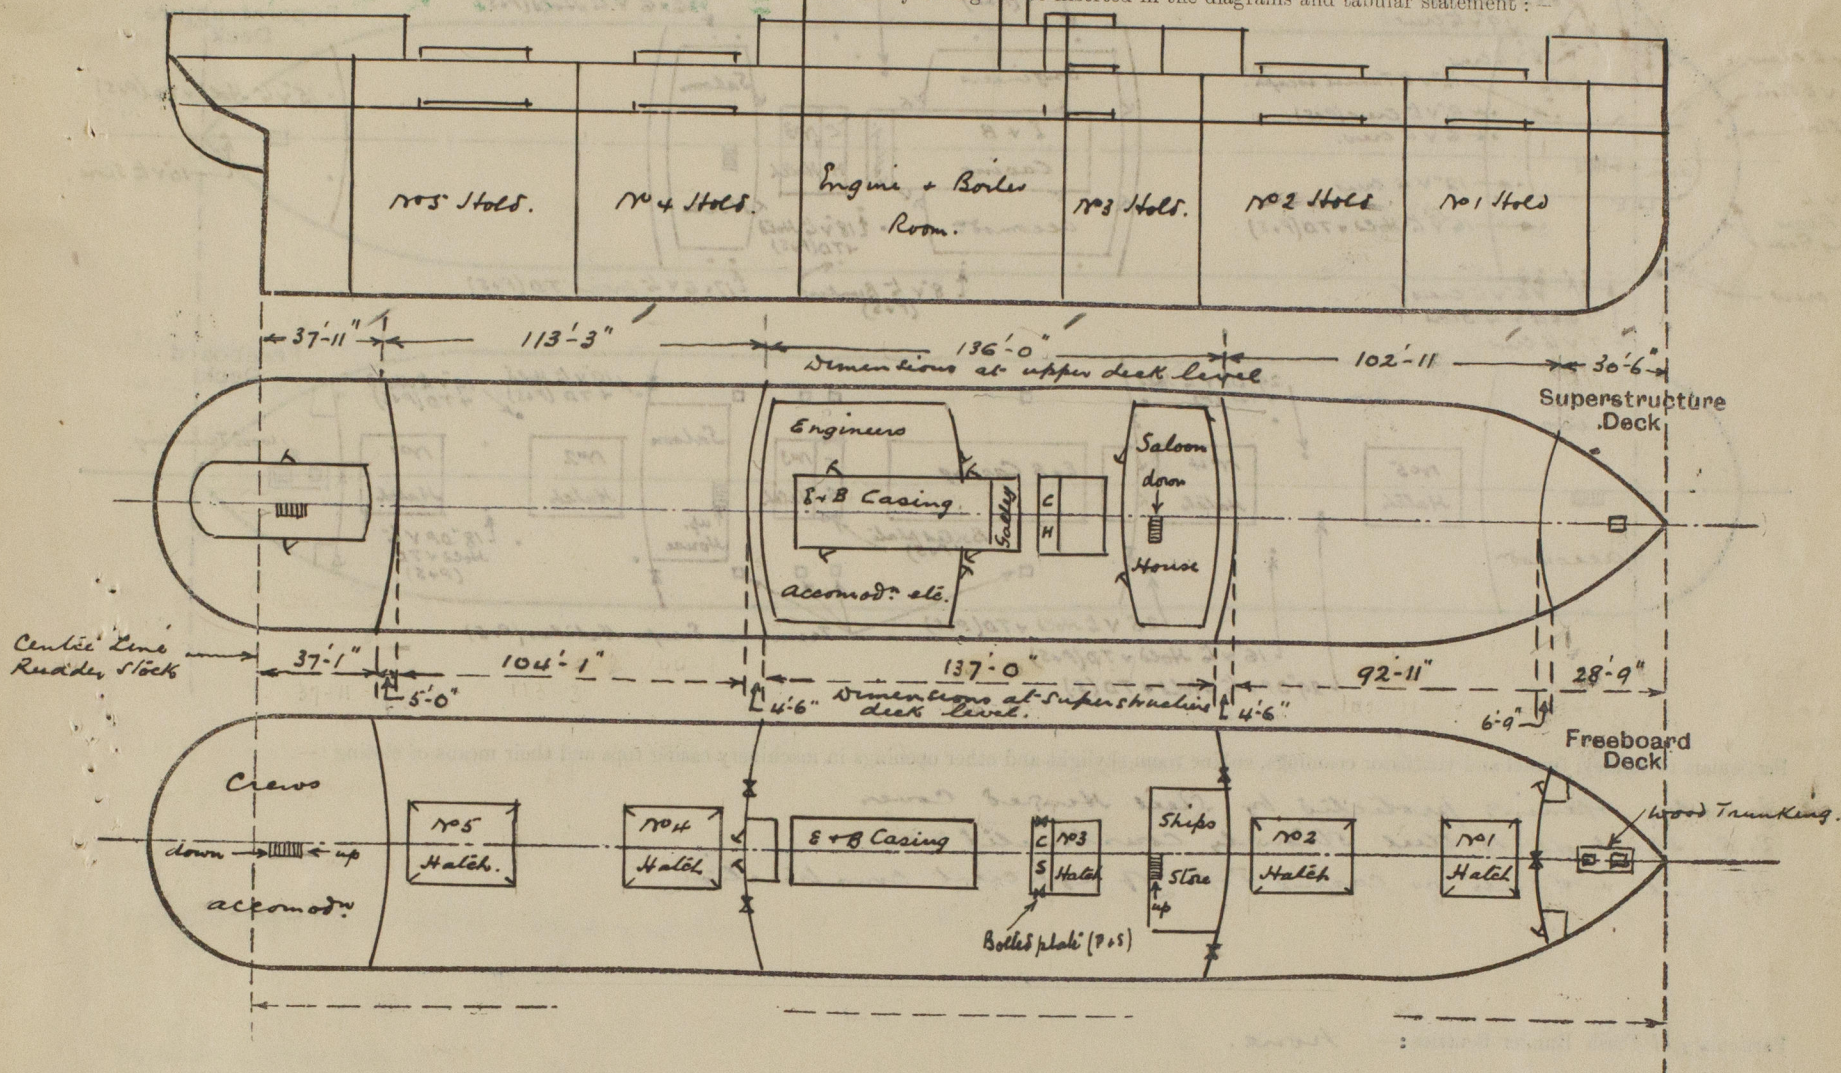 inserted in the diagrams and tabular statement :—
No 5 Hold.
No 4 Hold.
Engine & Boiler
Room.
No 3 Hold.
No 2 Hold
No 1 Hold
37'-11"
113'-3"
136'-0"
102'-11
30'-6"
Dimensions at upper deck level
Superstructure
Deck
Engineers
E & B Casing
Galley
C
H
Saloon
down
House
Accomodn. etc.
Centre Line
Rudder Stock
37'-1"
104'-1"
137'-0"
92'-11"
28'-9"
5'-0"
4'-6"
Dimensions at superstructure
deck level.
4'-6"
6'-9"
Freeboard
Deck
Crews
down
up
accomodn.
No 5
Hatch.
No 4
Hatch
E & B Casing
C
S
No 3
Hatch
Ships
Store
up
No 2
Hatch
No 1
Hatch
Wood Trunking.
Bolted plate (P & S)